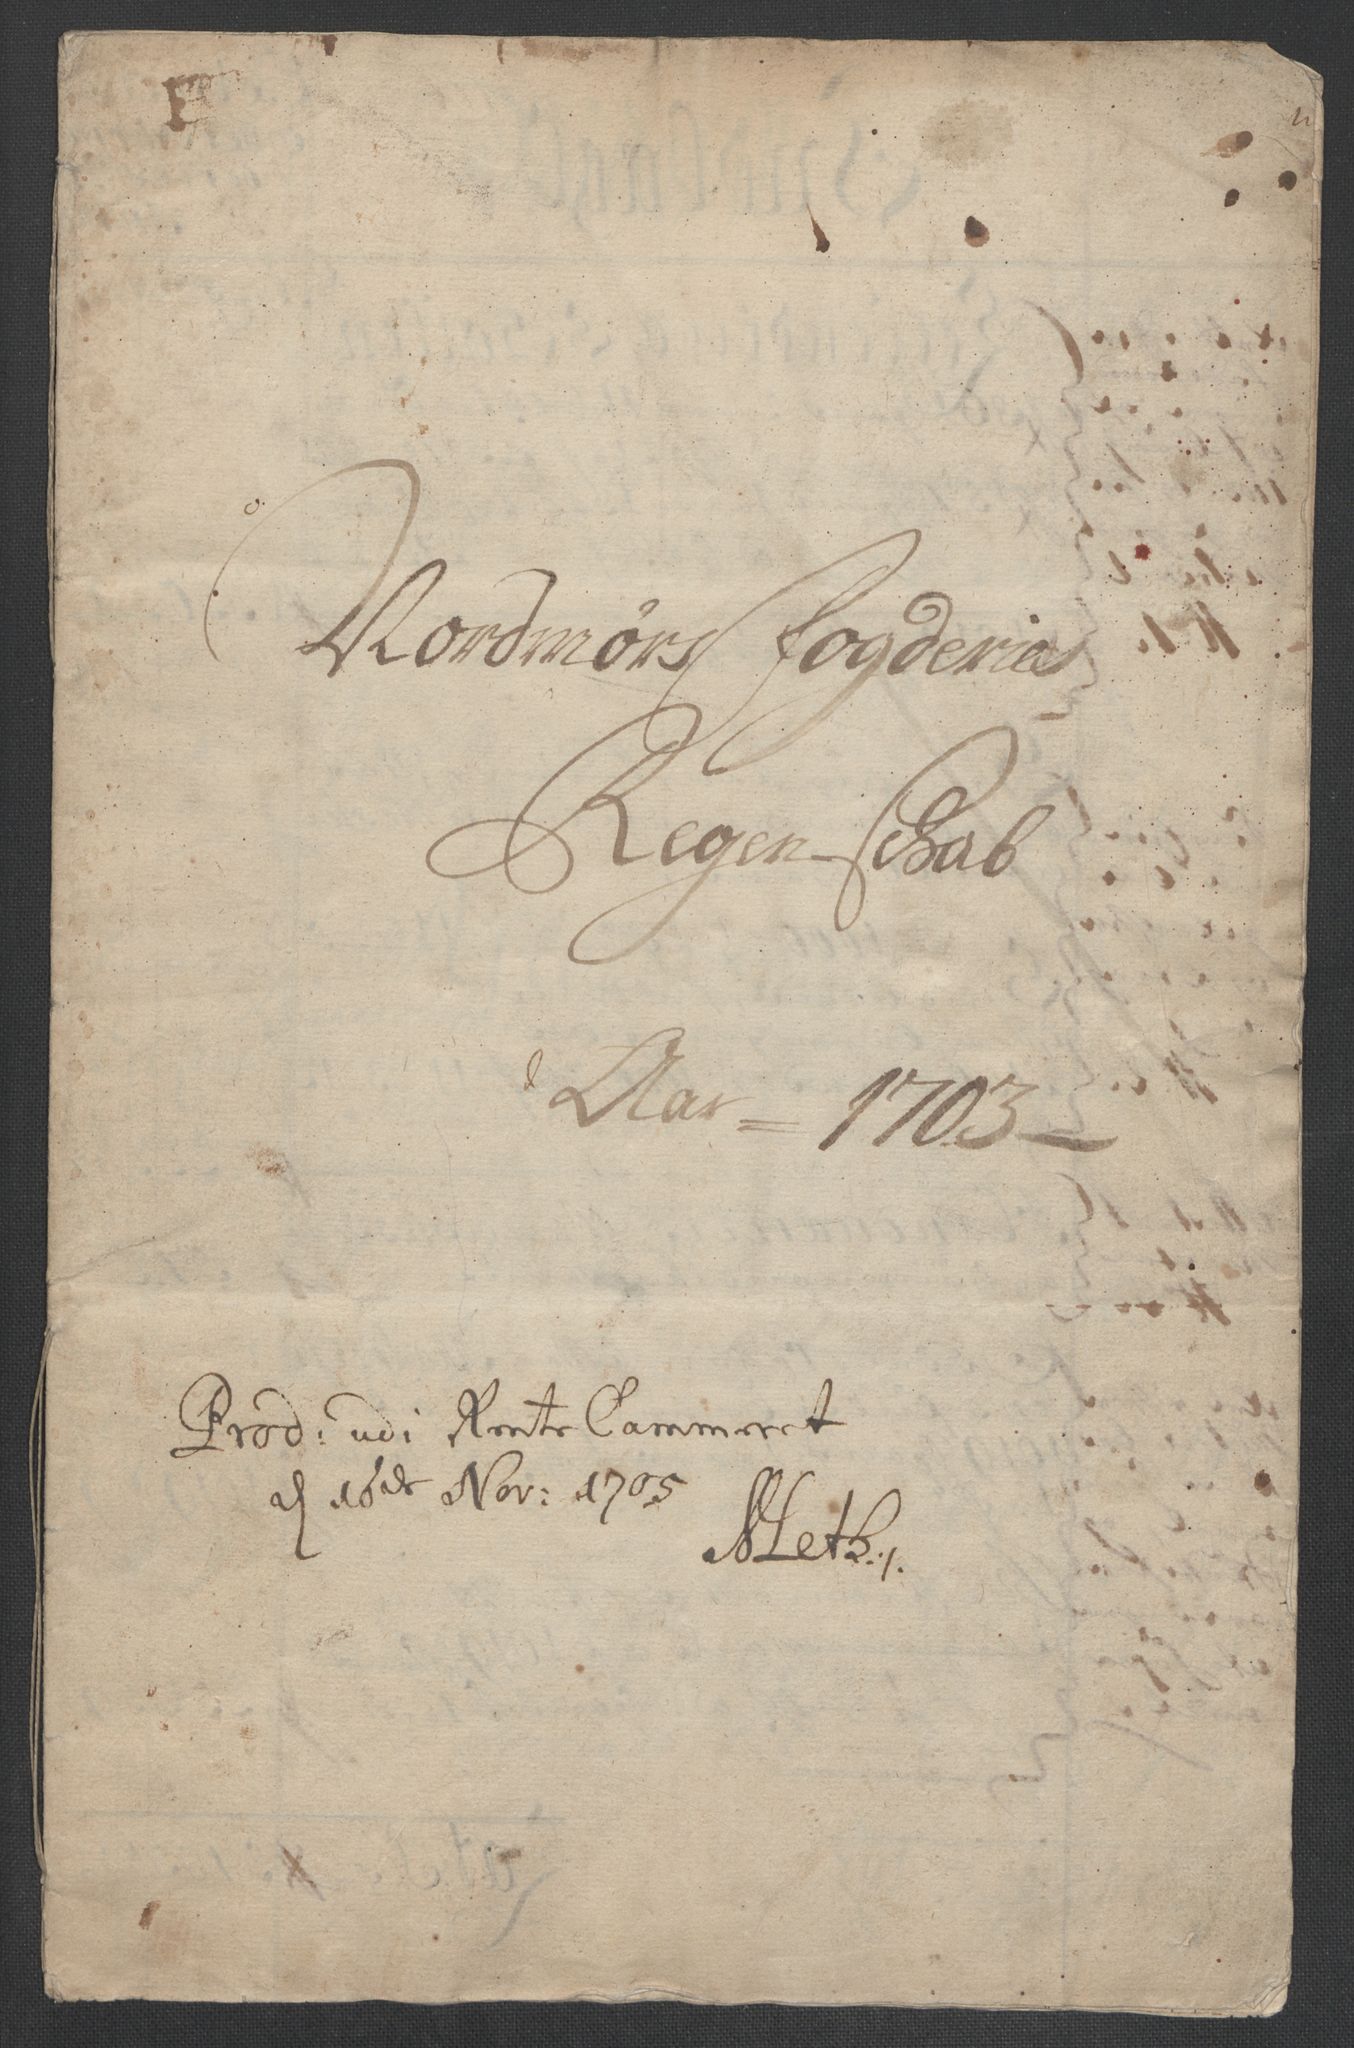 Nordmørs fogderies
Regen-schab
Aar = 1703
Prod: udi Rente Cammeret
d 16de Nov: 1705
NLeth./.